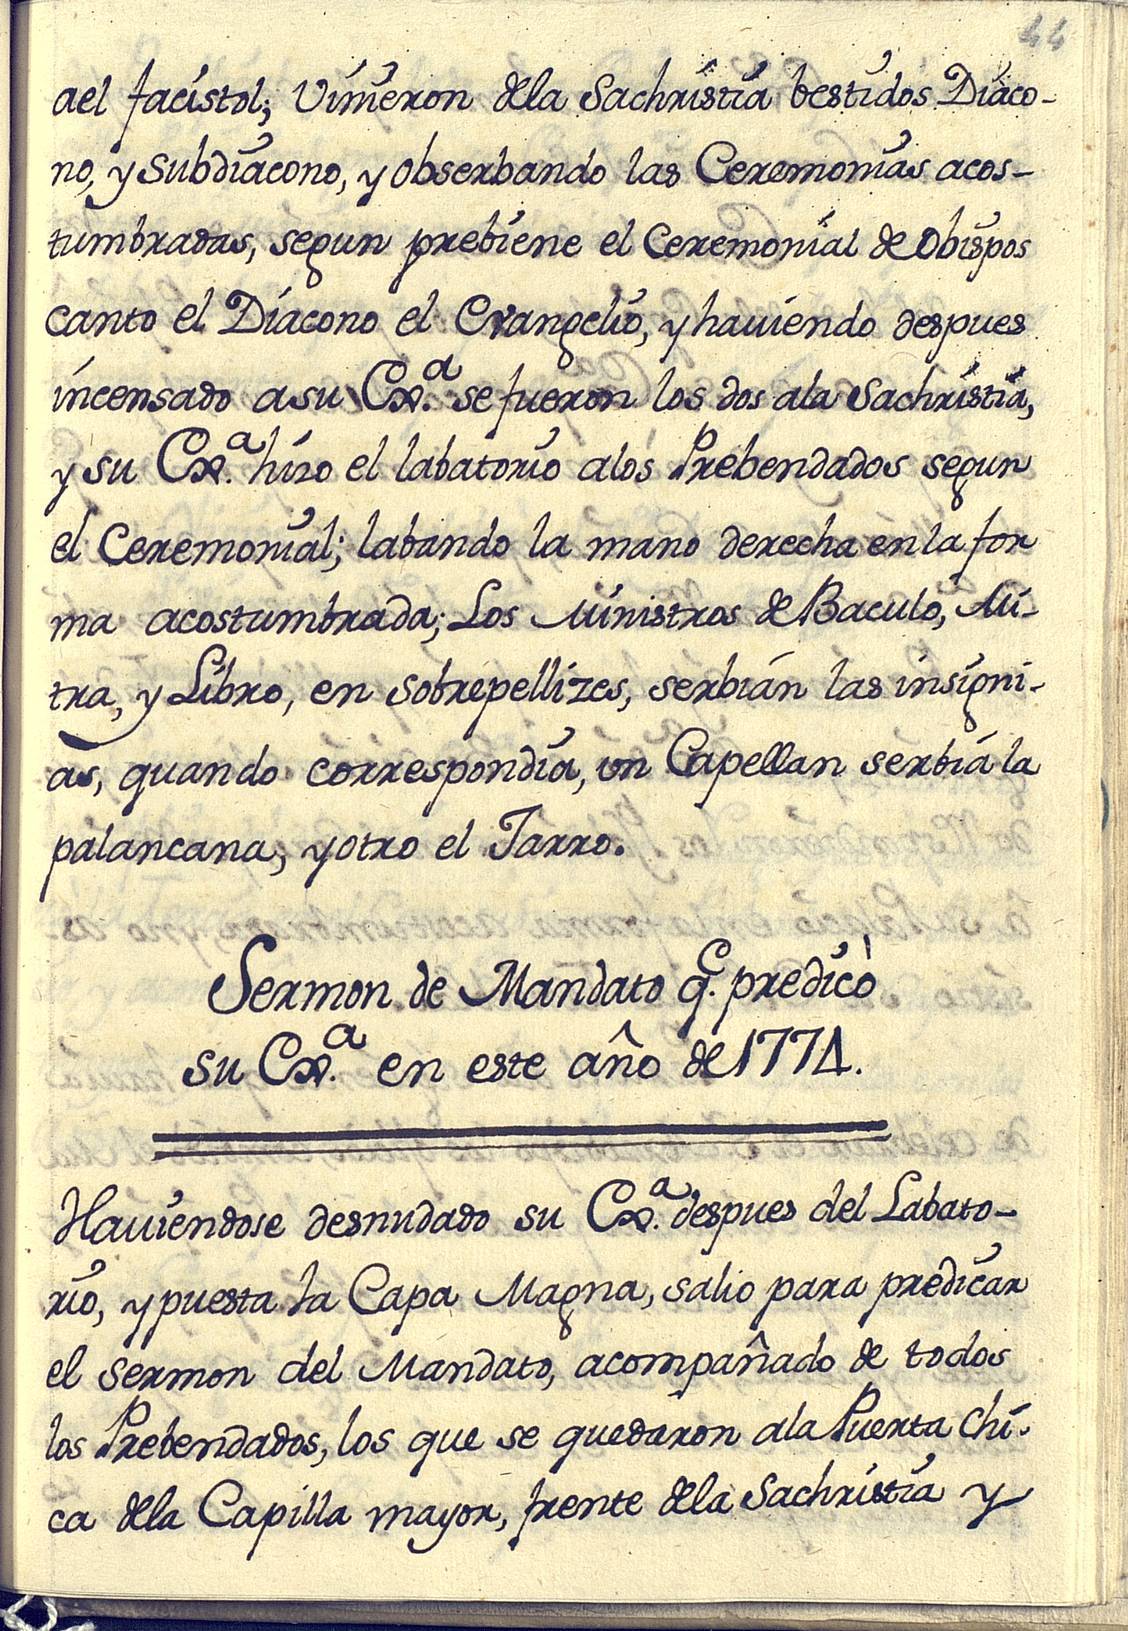 44
ael facistol; Vinieron dela Sachristia bestidos Diaco-
no, y Subdiacono, y obserbando las Ceremonias acos-
tumbradas, segun prebiene el Ceremonial de Obispos
canto el Diacono el Evangelio, y haviendo despues
incensado a su Exª. se fueron los dos ala Sachristia,
y su Exª. hizo el labatorio alos Prebendados segun
el Ceremonial; labando la mano derecha en la for
ma acostumbrada; Los Ministros de Baculo, Mi-
tra, y Libro, en sobrepellizes, serbian las insigni-
as, quando correspondia, un Capellan serbia la
palancana, y otro el Jarro.
Sermon de Mandato q.e predicò
su Exª. en este año de 1774.
Haviendose desnudado su Exª. despues del Labato-
rio, y puesta la Capa Magna, salio para predicar
el sermon del Mandato, acompañado de todos
los Prebendados, los que se quedaron ala Puerta Chi-
ca dela Capilla mayor, frente dela Sachristia y